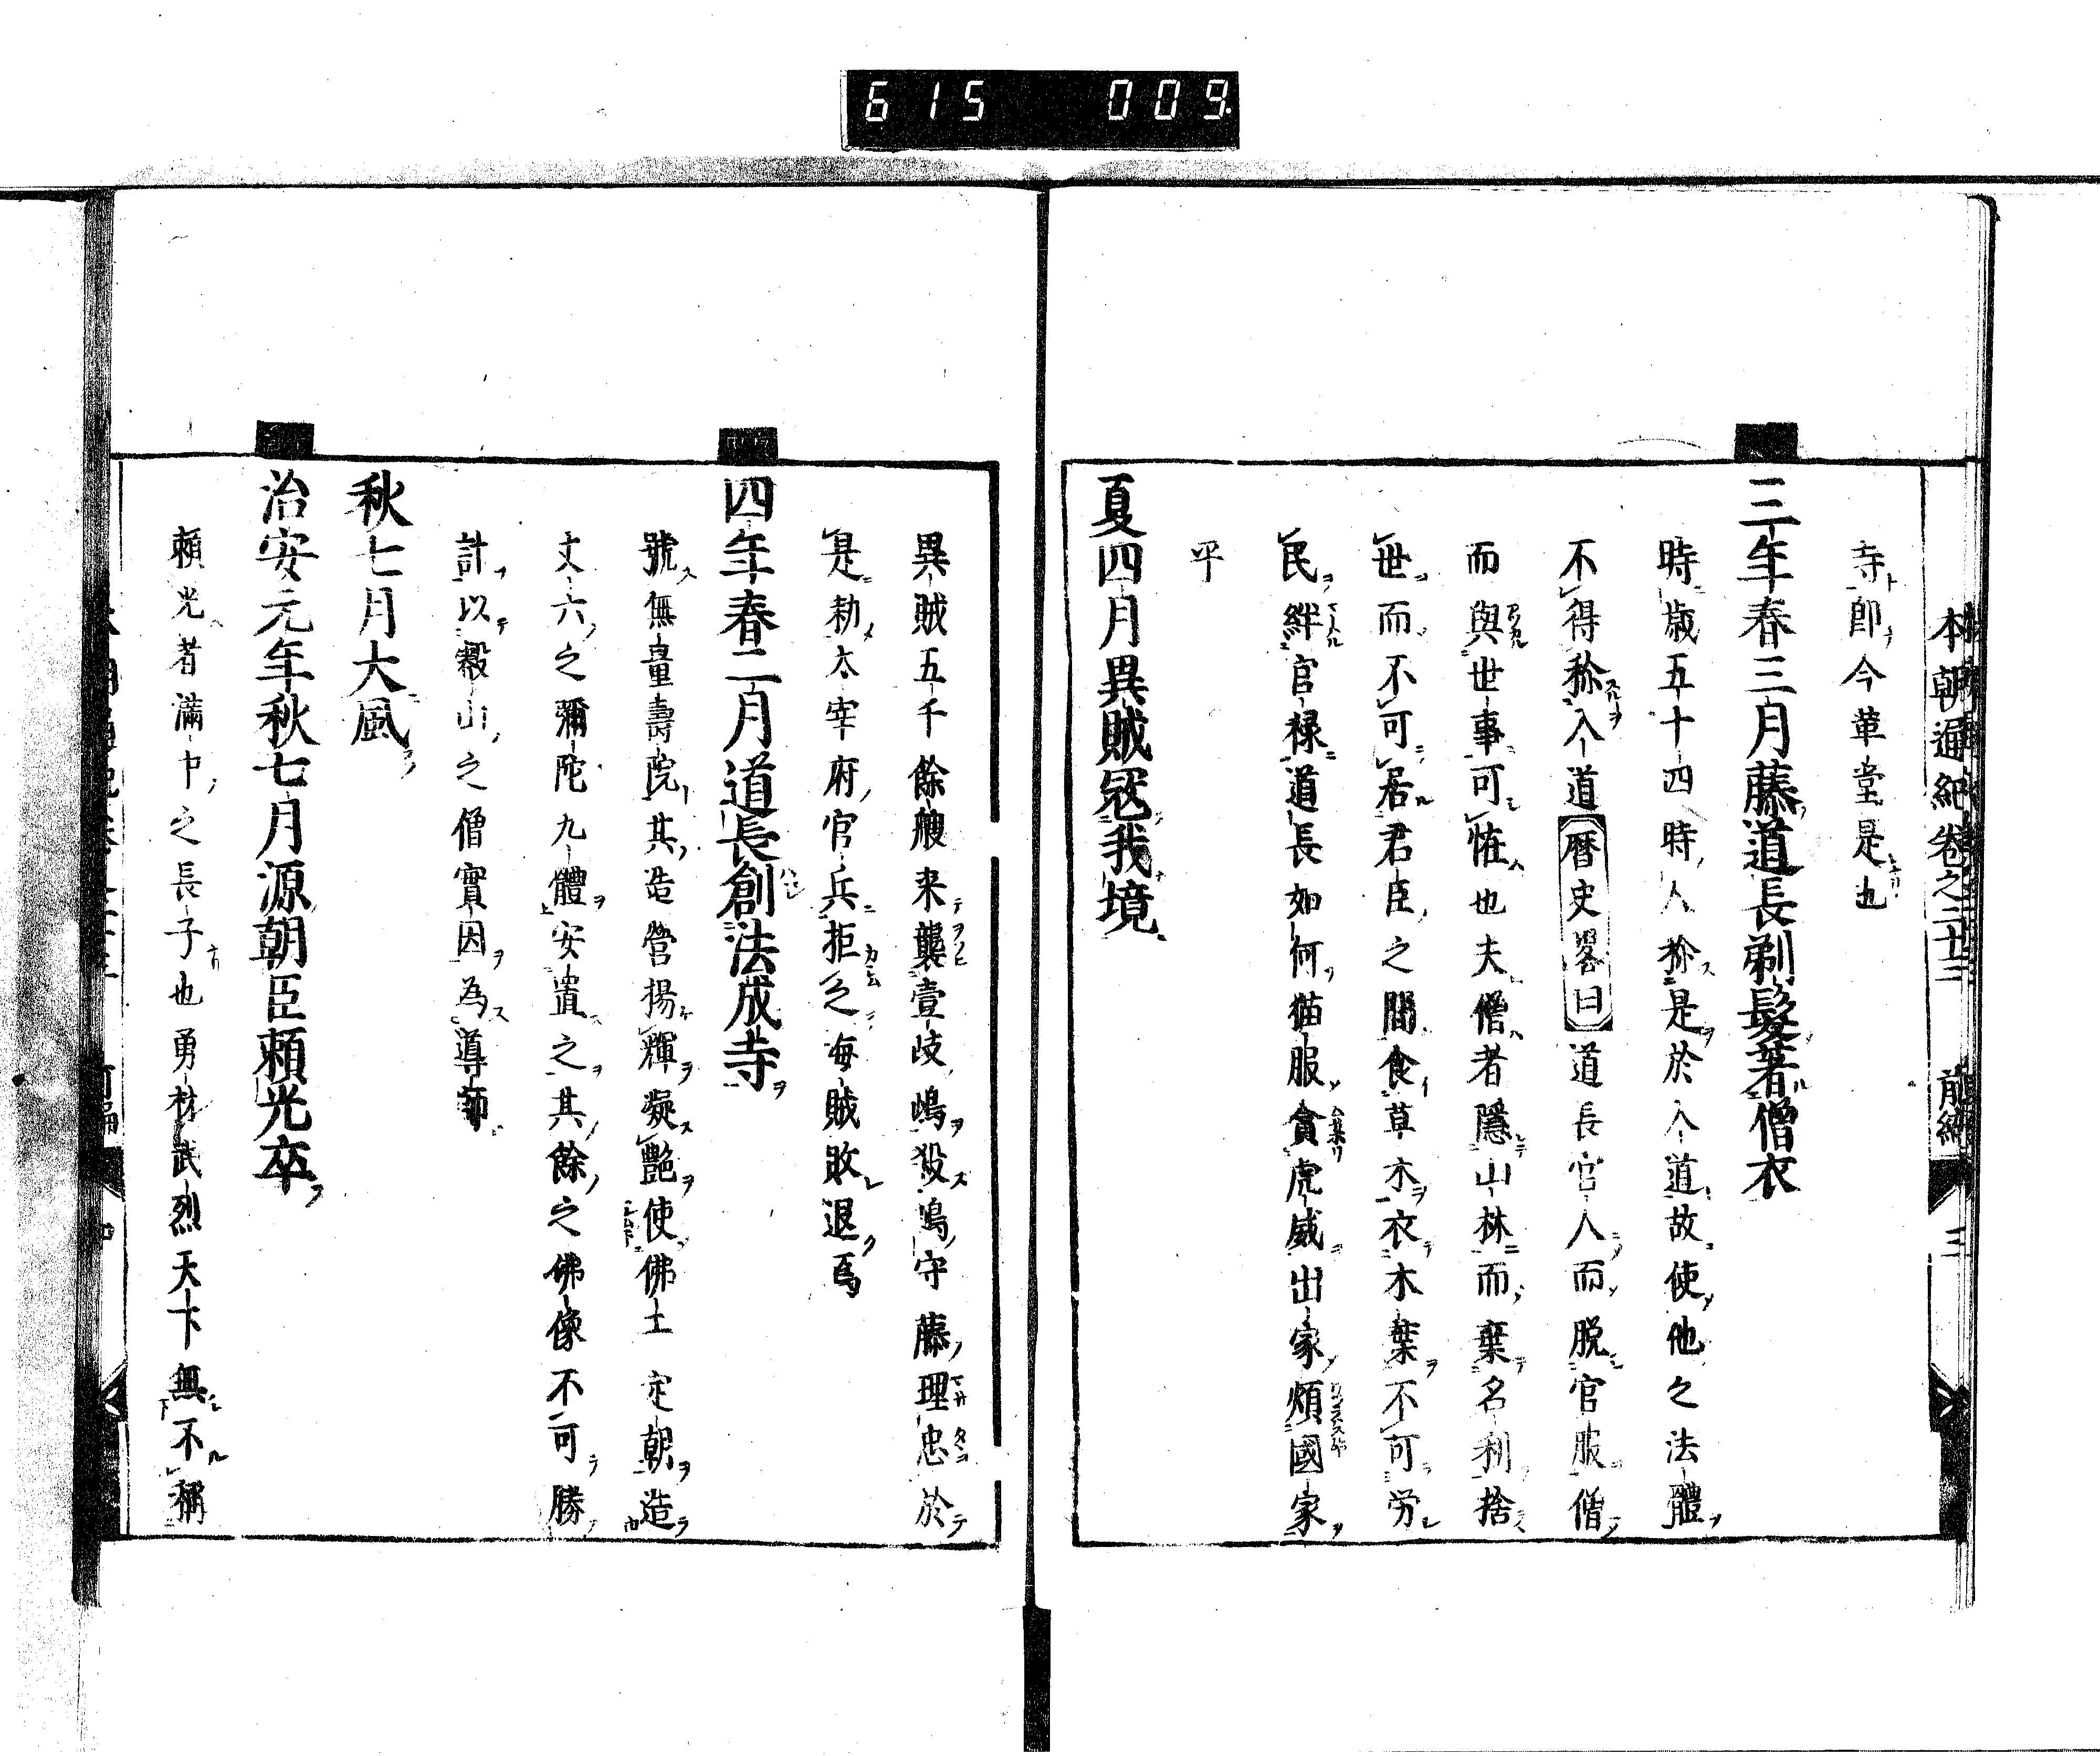 615 009
本朝通紀卷之二十三 前編 三
寺即今革堂是也
三年春三月藤道長剃髮著僧衣
時歳五十四時人称是於入道故使他之法體
不得称入道暦史畧曰道長官人而脱官服僧
而與世事可恠也夫僧者隱山林而棄名利捨
世而不可居君臣之間食草木衣木葉不可労
民絆官禄道長如何猫服貪虎威出家煩國家
乎
夏四月異賊冦我境
異賊五千餘艘来襲壹岐嶋殺嶋守藤理忠於
是勅太宰府官兵拒之海賊敗退焉
四年春二月道長創法成寺
號無量壽院其造營揚輝凝艶使佛土 定朝造
丈六之彌陀九體安置之其餘之佛像不可勝
計以穀山之僧實因為導師
秋七月大風
治安元年秋七月源朝臣頼光卒
頼光者滿中之長子也勇材武烈天下無不稱